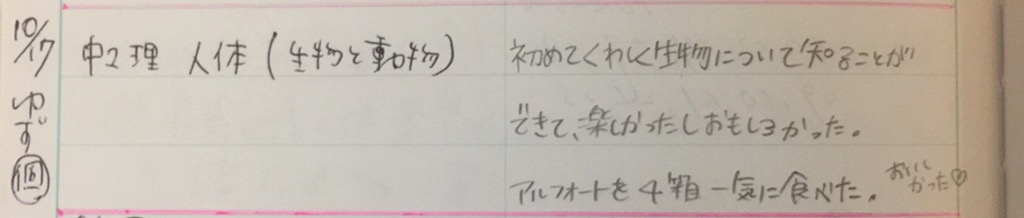 10/17
ゆず
個
中2理 人体(生物と動物)
初めてくわしく生物について知ることが
できて、楽しかったしおもしろかった。
アルフォートを4箱一気に食べた。
おいし
かった♡